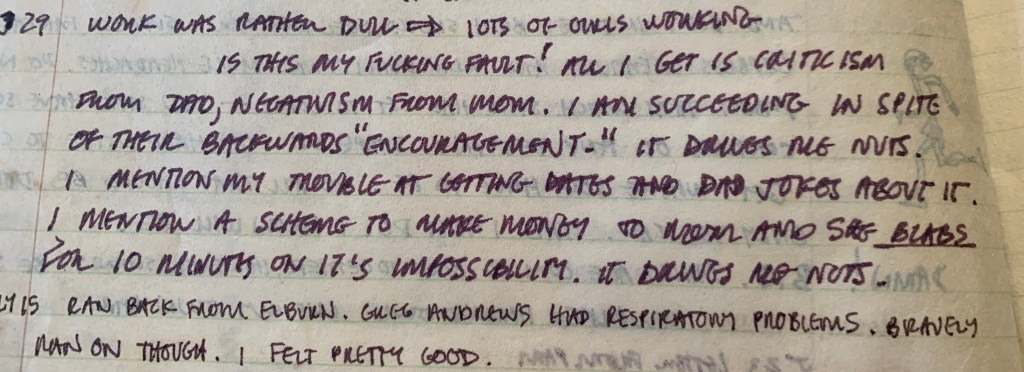 29 WORK WAS RATHER DULL ⇒ LOTS OF OURLS WORKING
IS THIS MY FUCKING FAULT! ALL I GET IS CRITICISM
FROM DAD, NEGATIVISM FROM MOM. I AM SUCCEEDING IN SPITE
OF THEIR BACKWARDS "ENCOURAGEMENT." IT DRIVES ME NUTS.
I MENTION MY TROUBLE AT GETTING DATES AND DAD JOKES ABOUT IT.
I MENTION A SCHEME TO MAKE MONEY TO MOM AND SHE BLABS
FOR 10 MINUTES ON IT'S IMPOSSIBILITY. IT DRIVES ME NUTS.
15 RAN BACK FROM ELBURN. GREG ANDREWS HAD RESPIRATORY PROBLEMS. BRAVELY
RAN ON THOUGH. I FELT PRETTY GOOD.